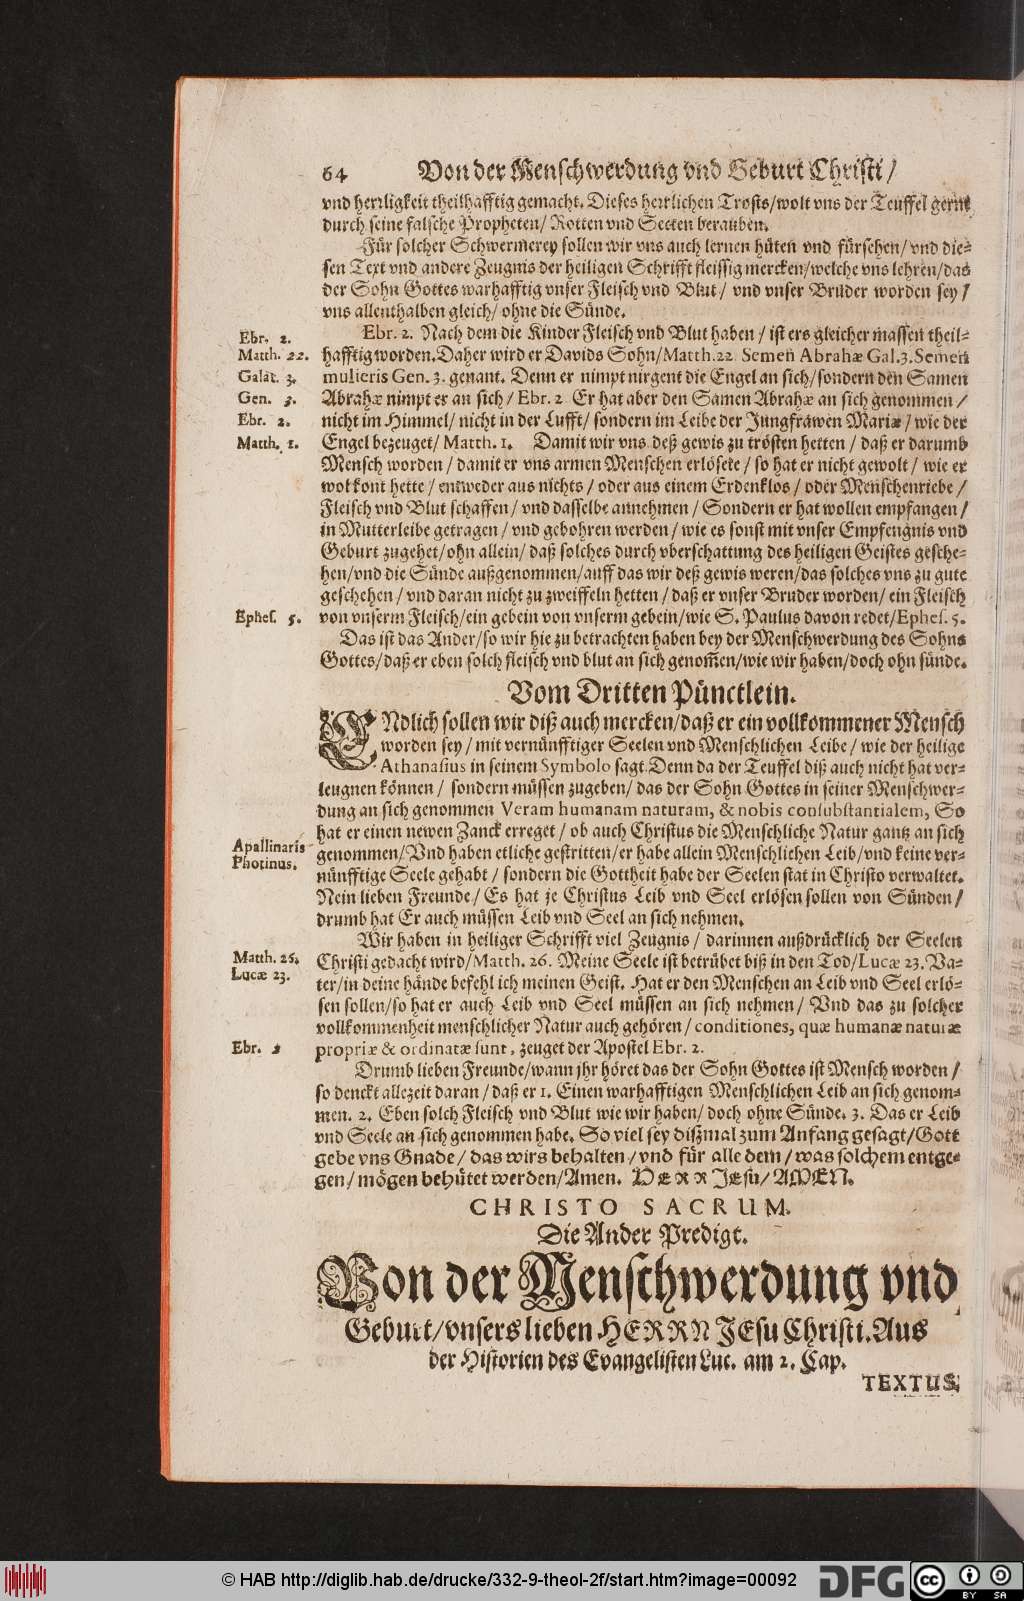 64 Von der Menschwerdung vnd Geburt Christi /
vnd herrligkeit theilhafftig gemacht. Dieses herrlichen Trosts/wolt vns der Teuffel gerne
durch seine falsche Propheten/ Rotten vnd Secten berauben.
Für solcher Schwermerey sollen wir vns auch lernen hüten vnd fürsehen/ vnd die-
sen Text vnd andere Zeugnis der heiligen Schrifft fleissig mercken/welche vns lehren/das
der Sohn Gottes warhafftig vnser Fleisch vnd Blut / vnd vnser Bruder worden sey /
vns allenthalben gleich/ ohne die Sünde.
Ebr. 2.
Ebr. 2. Nach dem die Kinder Fleisch vnd Blut haben / ist ers gleicher massen theil-
Matth. 22.
hafftig worden. Daher wird er Davids Sohn/Matth.22 Semen Abrahæ Gal.3. Semen
Galat. 3.
mulieris Gen. 3. genant. Denn er nimpt nirgent die Engel an sich/sondern den Samen
Gen. 3.
Abrahæ nimpt er an sich / Ebr. 2 Er hat aber den Samen Abrahæ an sich genommen /
Ebr. 2.
nicht im Himmel/ nicht in der Lufft/ sondern im Leibe der Jungfrawen Mariæ / wie der
Matth. 1.
Engel bezeuget/ Matth. 1. Damit wir vns deß gewis zu trösten hetten / daß er darumb
Mensch worden / damit er vns armen Menschen erlösete / so hat er nicht gewolt / wie er
wol kont hette / entweder aus nichts / oder aus einem Erdenklos / oder Menschenriebe /
Fleisch vnd Blut schaffen / vnd dasselbe annehmen / Sondern er hat wollen empfangen /
in Mutterleibe getragen / vnd gebohren werden / wie es sonst mit vnser Empfengnis vnd
Geburt zugehet/ohn allein/ daß solches durch vberschattung des heiligen Geistes gesche-
hen/vnd die Sünde außgenommen/auff das wir deß gewis weren/das solches vns zu gute
geschehen / vnd daran nicht zu zweiffeln hetten / daß er vnser Bruder worden/ ein Fleisch
Ephes. 5.
von vnserm Fleisch/ein gebein von vnserm gebein/wie S. Paulus davon redet/Ephes. 5.
Das ist das Ander/so wir hie zu betrachten haben bey der Menschwerdung des Sohns
Gottes/daß er eben solch fleisch vnd blut an sich genom̃en/wie wir haben/doch ohn sünde.
Vom Dritten Pünctlein.
ENdlich sollen wir diß auch mercken/daß er ein vollkommener Mensch
worden sey / mit vernünfftiger Seelen vnd Menschlichen Leibe / wie der heilige
Athanasius in seinem Symbolo sagt. Denn da der Teuffel diß auch nicht hat ver-
leugnen können / sondern müssen zugeben/ das der Sohn Gottes in seiner Menschwer-
dung an sich genommen Veram humanam naturam, & nobis consubstantialem, So
hat er einen newen Zanck erreget / ob auch Christus die Menschliche Natur gantz an sich
Apallinaris
genommen/Vnd haben etliche gestritten/er habe allein Menschlichen Leib/vnd keine ver-
Photinus.
nünfftige Seele gehabt / sondern die Gottheit habe der Seelen stat in Christo verwaltet.
Nein lieben Freunde / Es hat je Christus Leib vnd Seel erlösen sollen von Sünden /
drumb hat Er auch müssen Leib vnd Seel an sich nehmen.
Wir haben in heiliger Schrifft viel Zeugnis / darinnen außdrücklich der Seelen
Matth. 26.
Christi gedacht wird/Matth. 26. Meine Seele ist betrübet biß in den Tod/Lucæ 23. Va-
Lucæ 23.
ter/in deine hände befehl ich meinen Geist. Hat er den Menschen an Leib vnd Seel erlö-
sen sollen/so hat er auch Leib vnd Seel müssen an sich nehmen / Vnd das zu solcher
vollkommenheit menschlicher Natur auch gehören / conditiones, quæ humanæ naturæ
Ebr. 2
propriæ & ordinatæ sunt, zeuget der Apostel Ebr. 2.
Drumb lieben Freunde/wann jhr höret das der Sohn Gottes ist Mensch worden /
so denckt allezeit daran / daß er 1. Einen warhafftigen Menschlichen Leib an sich genom-
men. 2. Eben solch Fleisch vnd Blut wie wir haben/ doch ohne Sünde. 3. Das er Leib
vnd Seele an sich genommen habe. So viel sey dißmal zum Anfang gesagt/Gott
gebe vns Gnade / das wirs behalten / vnd für alle dem / was solchem entge-
gen / mögen behütet werden/Amen. HERR JEsu/ AMEN.
CHRISTO SACRUM.
Die Ander Predigt.
Von der Menschwerdung vnd
Geburt/vnsers lieben HERRN JEsu Christi. Aus
der Historien des Evangelisten Luc. am 2. Cap.
TEXTUS.
© HAB http://diglib.hab.de/drucke/332-9-theol-2f/start.htm?image=00092
DFG
cc
BY SA